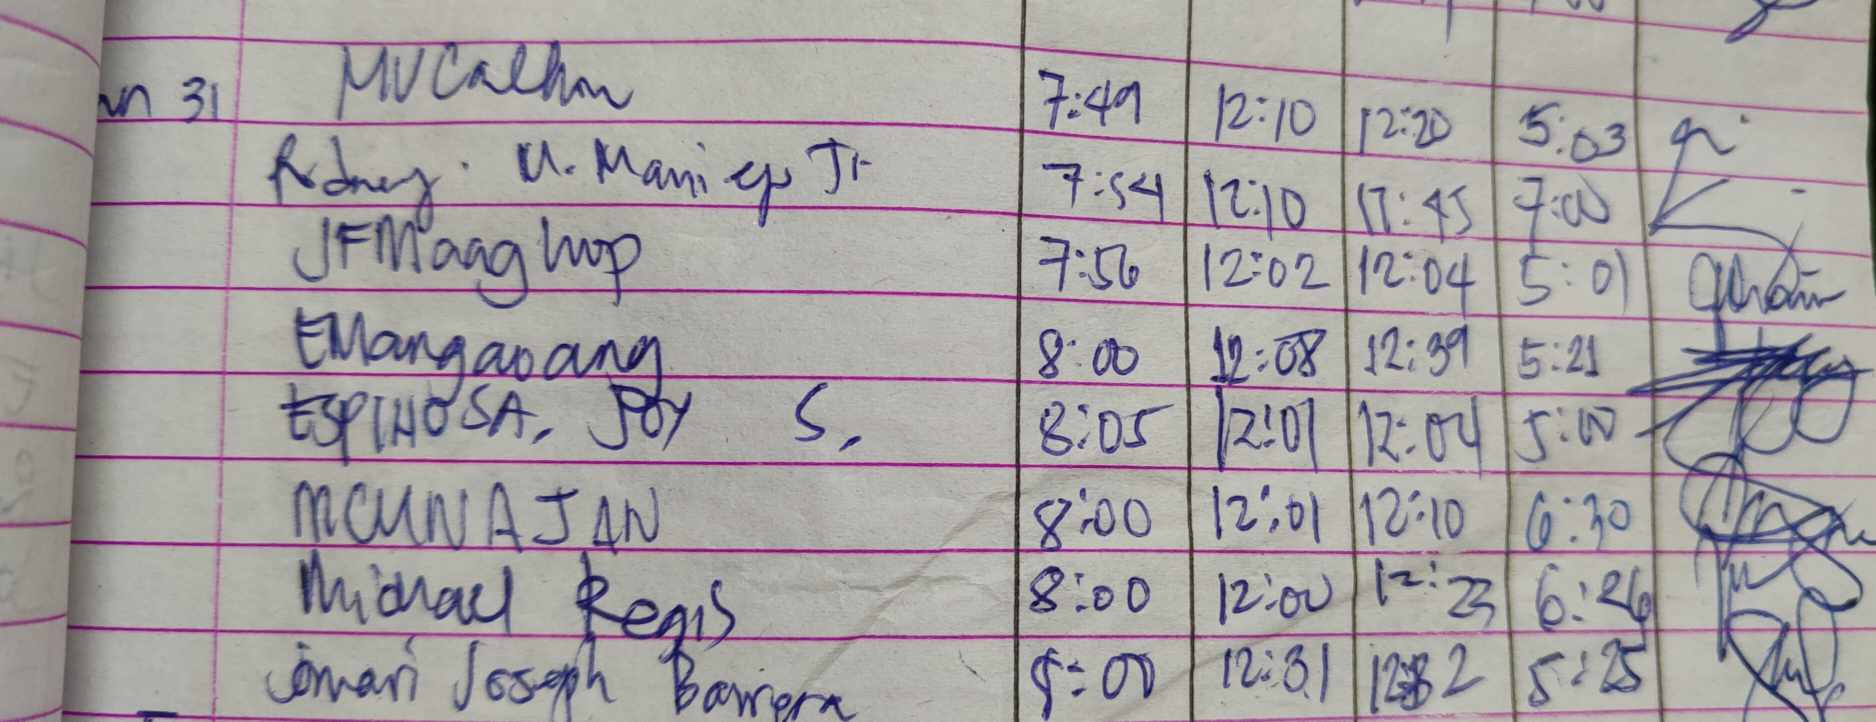 31 7:49 12:10 12:20 5:03
Rodney. U. Maniego Jr 7:54 12:10 12:45 7:00
JFMaaghop 7:56 12:02 12:04 5:01
EMangaoang 8:00 12:08 12:39 5:21
ESPINOSA, JOY S. 8:05 12:01 12:04 5:00
MCMUNAJAN 8:00 12:01 12:10 6:30
Michael Regis 8:00 12:00 12:23 6:26
Jomari Joseph Barrera 8:00 12:31 12:32 5:25